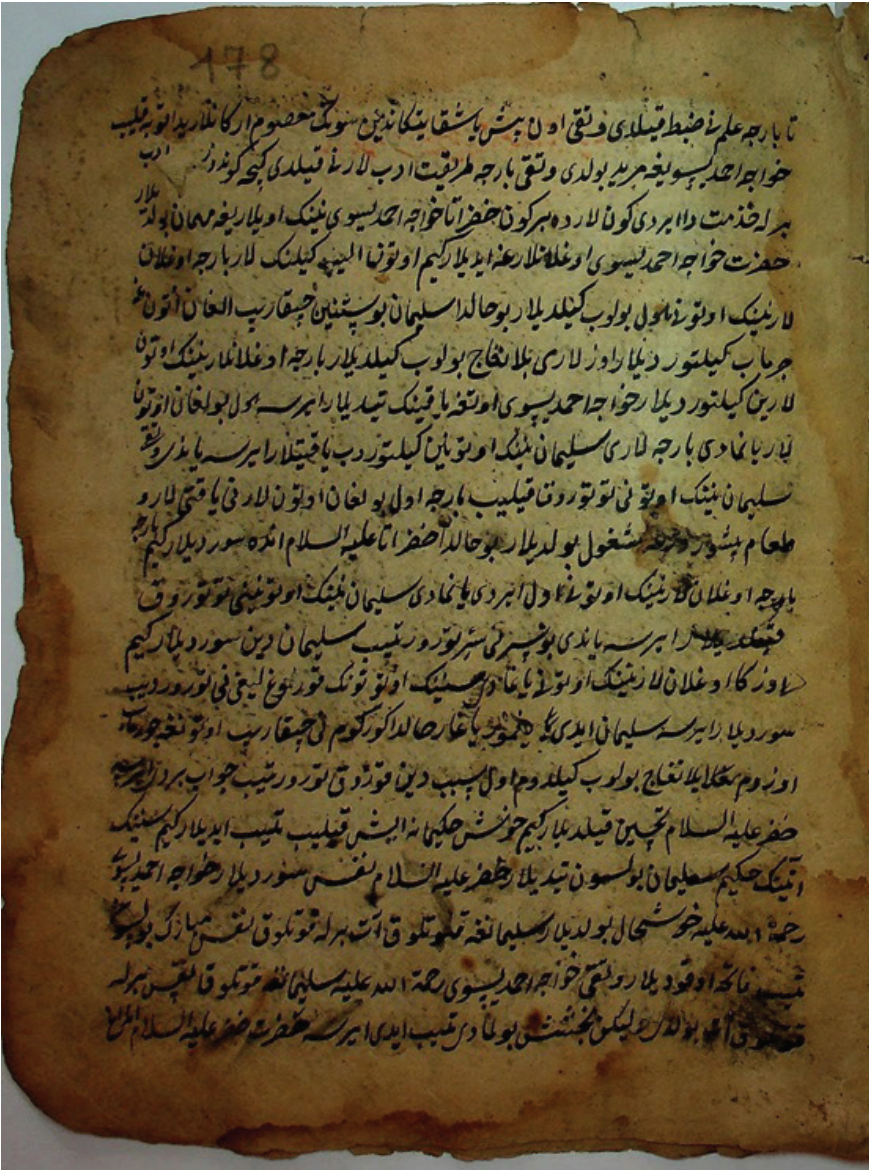 178
تا بارجه علم نی ضبط قیلدی و تقی اون بیش یاشقا یتکاندین سونک معصوم ارکانلاریدا توبه قیلیب
خواجه احمد یسویغه مرید بولدی و تقی بارجه طریقت ادب لارنی قیلدی کیجه کوندوز ادب
بیرله خذمت دا ایردی کون لارده بیر کون خضر اتا خواجه احمد یسوی نینک اویلاریغه مهمان بولدیلار
حضرت خواجه احمد یسوی اوغلانلارغه ایدیلار کیم اوتون الیب کیلنک لار بارجه اوغلان
لارنینک اوتونی اول بولوب کیلدیلار بو حالدا سلیمان بوستنین چیقاریب الغان اوتون غه
جرماب کیلتوردیلار اوزلاری یلانغاج بولوب کیلدیلار بارجه اوغلانلارنینک اوتون
لارین کیلتوردیلار خواجه احمد یسوی اوتغه یاقینک تیدیلار ایرسه اول بولغان اوتون
لار یانمادی بارجه لاری سلیمان نینک اوتونین کیلتوردب یاقیتلار ایرسه یاندی و تقی
سلیمان نینک اوتونی توتوروق قیلیب بارجه اول بولغان اوتون لارنی یاقتی لار و
طعام بیشورورغه مشغول بولدیلار بو حالدا خضر اتا علیه السلام انده سوردیلار کیم بارجه
بارجه اوغلان لارنینک اوتونی اول ایردی یانمادی سلیمان نینک اوتونینی توتوروق
قیلدیلار ایرسه یاندی بو نی سر تورور تیب سلیمان دین سوردیلار کیم
اوزکا اوغلان لارنینک اوتونی یانمادی سنینک اوتونونک قوروغ لیغی نی تورور دیب
سوردیلار ایرسه سلیمان ایدی یغمور یاغار حالدا کورکوم نی چیقاریب اوتونغه جورماب
اوزوم یلانغاج بولوب کیلدوم اول سبب دین قوروق تورور تیب جواب بردی ایرسه
خضر علیه السلام تحسین قیلدیلار کیم خوش حکیمانه ایش قیلیب تیب ایدیلار کیم سنینک
اتینک حکیم سلیمان بولسون تیدیلار خضر علیه السلام نفس سوردیلار خواجه احمد یسوی
رحمة الله علیه خوشحال بولدیلار سلیمانغه قوتلوق آت بیرله قوتلوق نفس مبارک بولسون
تیب فاتحه اوقودیلار و تقی خواجه احمد یسوی رحمة الله علیه سلیمانغه قوتلوق نفس بیرله
قوتلوق آت بولدی لیکن بخشش بولمادی تیب ایدی ایرسه حضرت خضر علیه السلام